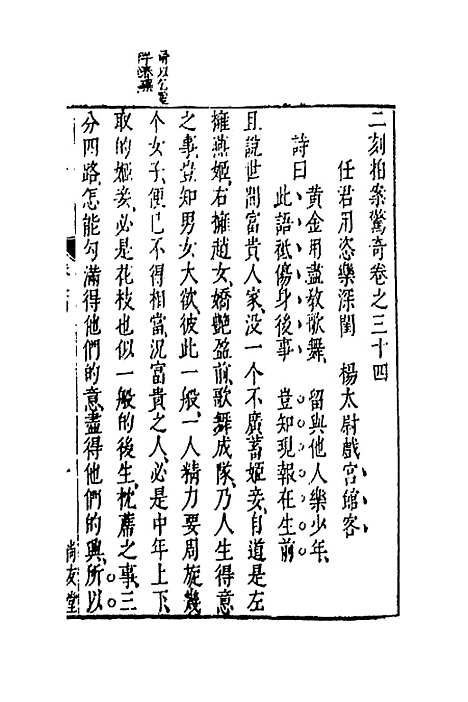 二刻拍案驚奇卷之三十四
任君用恣樂深閨　楊太尉戲宮館客
詩曰
黃金用盡教歌舞　留與他人樂少年
此語祗傷身後事　豈知現報在生前
且說世間富貴人家、没一个不廣蓄姬妾、自道是左
擁燕姬、右擁趙女、嬌艷盈前、歌舞成隊、乃人生得意
之事、豈知男女大欲、彼此一般、一人精力要周旋幾
个女子、便已不得相當、況富貴之人、必是中年上下、
取的姬妾、必是花枝也似一般的後生、枕蓆之事、三
分四路、怎能勾滿得他們的意、盡得他們的興、所以
尚友堂